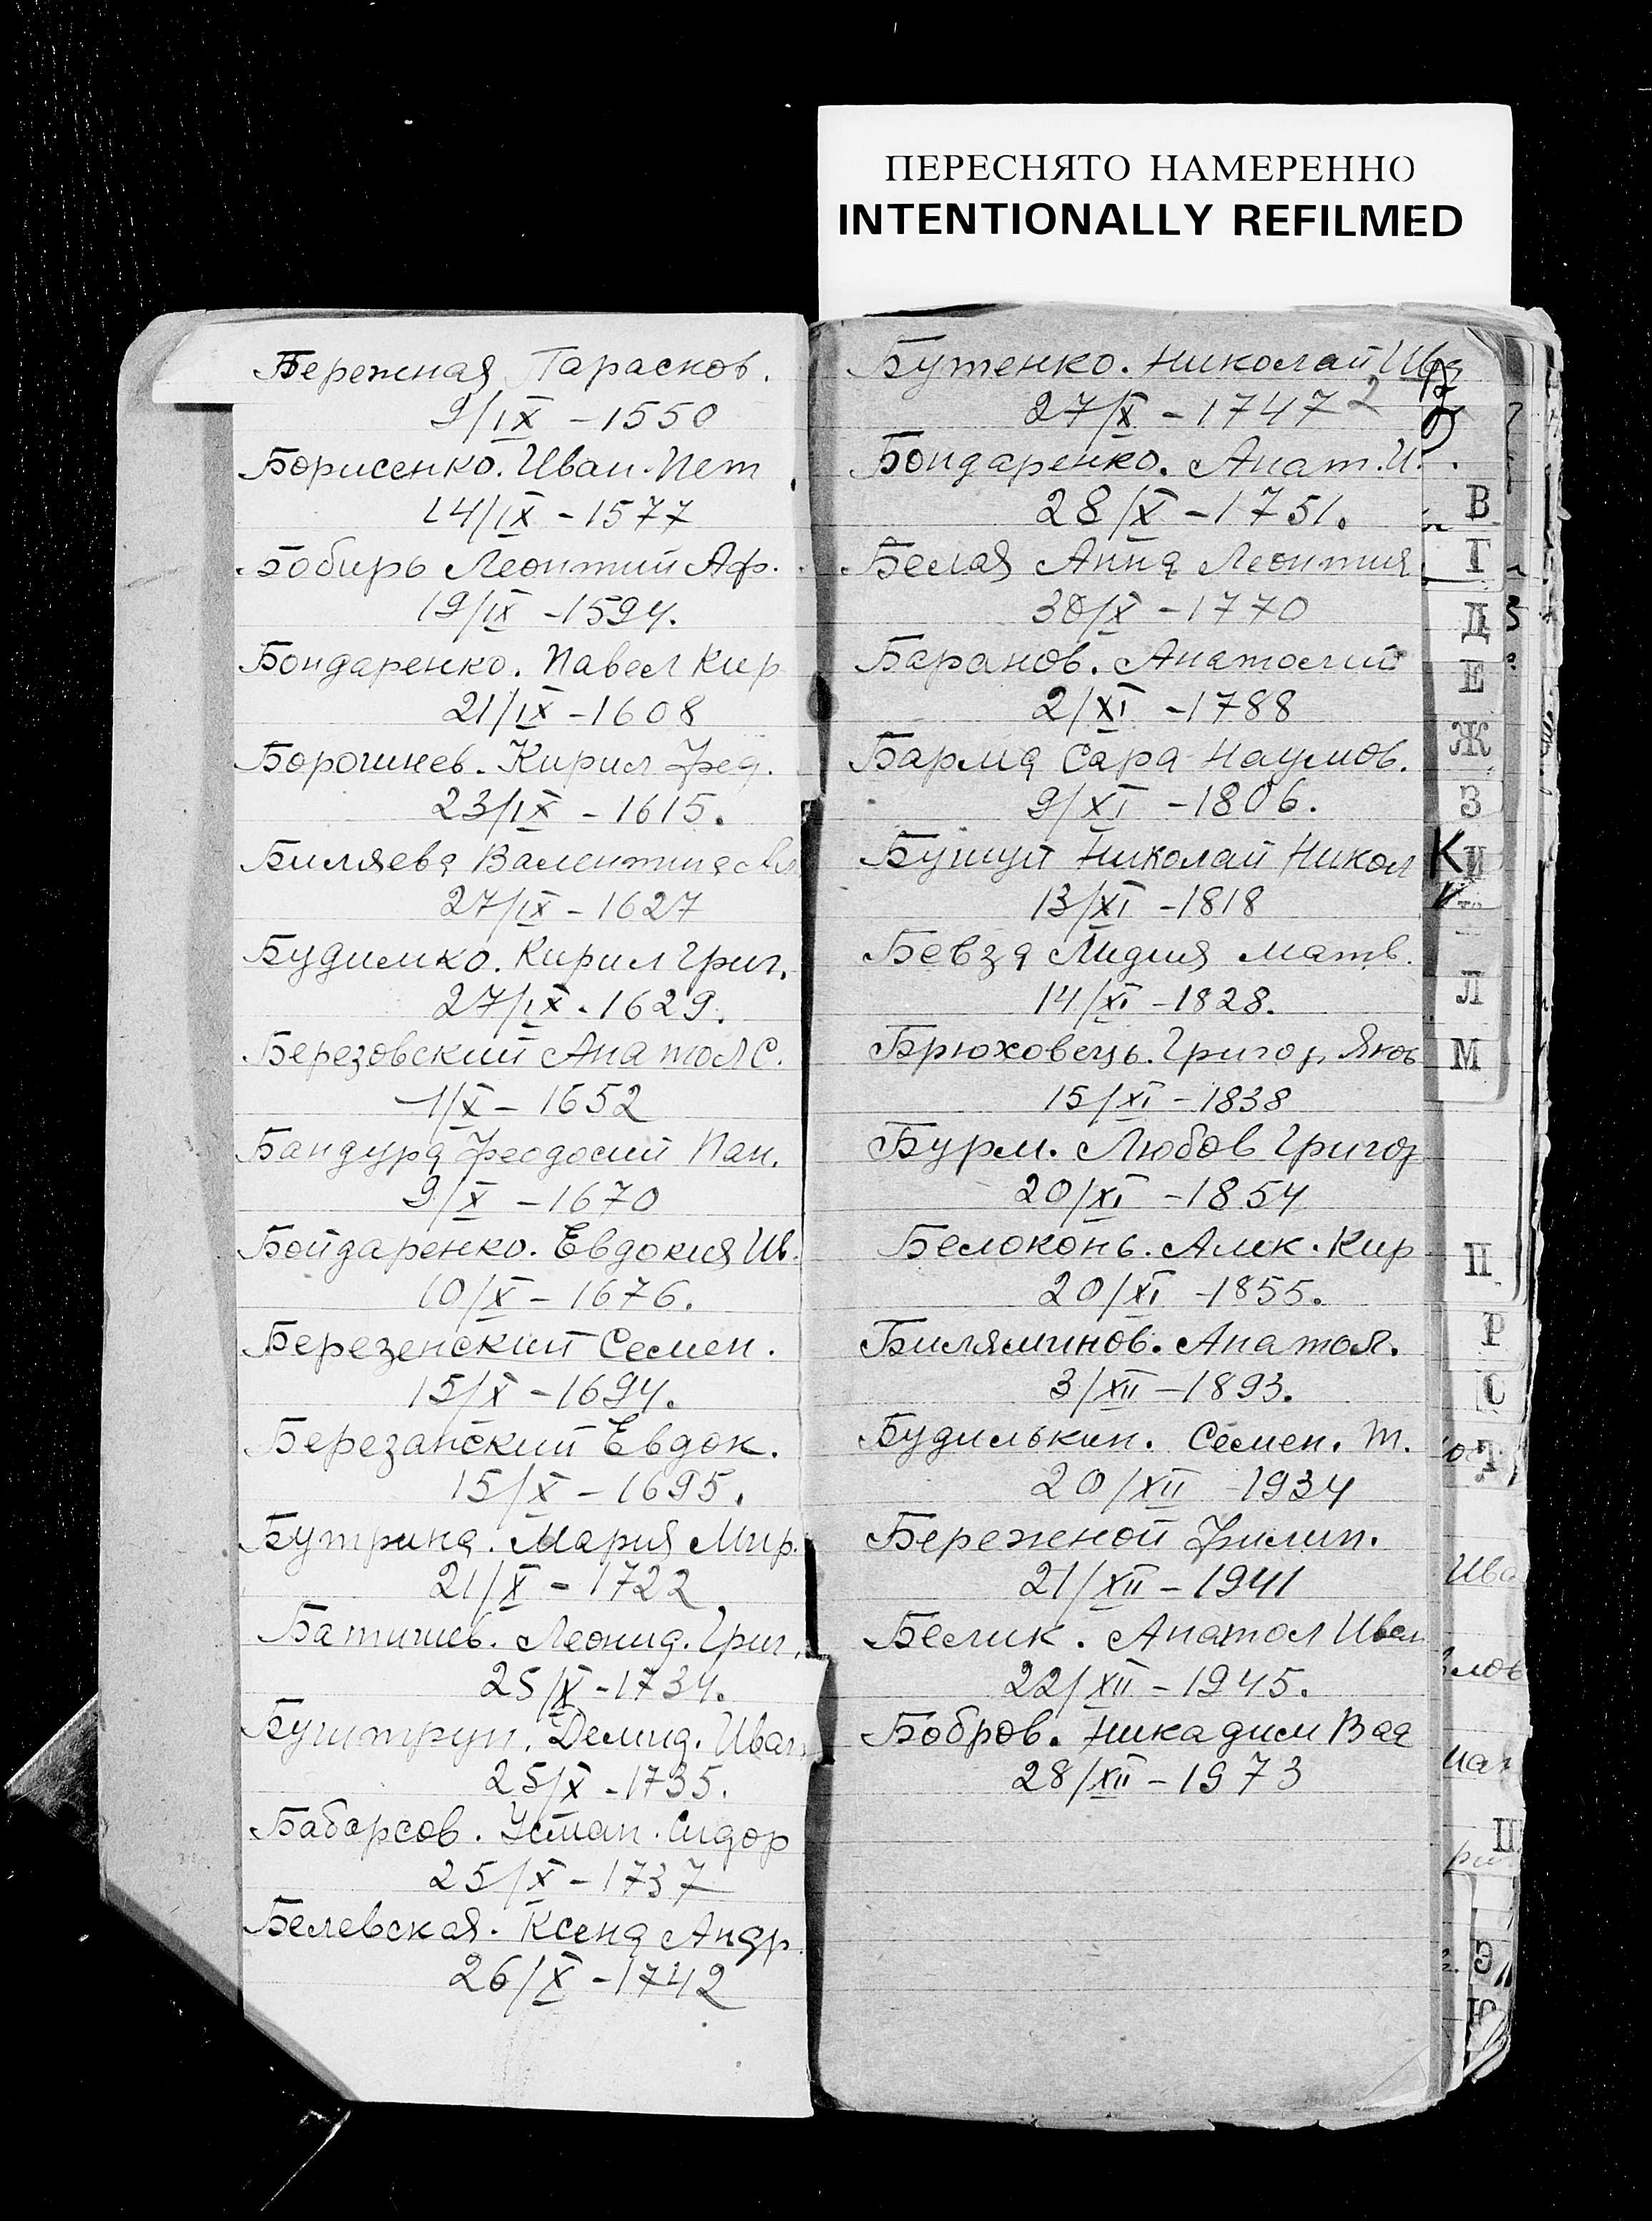 ПЕРЕСНЯТО НАМЕРЕННО
INTENTIONALLY REFILMED
Бережная Парасков.
9/IX - 1550
Борисенко. Иван. Пет
14/IX - 1577
Бобирь Леонтий Аф.
19/IX - 1594.
Бондаренко. Павел Кир
21/IX - 1608
Борошнев. Кирил Фед.
23/IX - 1615.
Биляева Валентина
27/IX - 1627
Будимко. Кирил Григ.
27/IX - 1629.
Березовский Анатол С.
1/X - 1652
Бандура Феодосий Пан.
9/X - 1670
Бойдаренко. Евдокия Ив.
10/X - 1676.
Березенский Семен.
15/X - 1694.
Березанский Евдок.
15/X - 1695.
Бутрина. Мария Мир.
21/X - 1722
Батишев. Леонид. Григ.
25/X - 1734.
Буштрун. Демид. Иван
25/X - 1735.
Бабарсов. Устан. Сидор
25/X - 1737
Белевская. Ксена Андр.
26/X - 1742
Бутенко. Николай Ива
27/X - 1747 2
Бондаренко. Анат. И.
28/X - 1751.
Белая Анна Леонтия
30/X - 1770
Баранов. Анатолий
2/XI - 1788
Барма Сара Наумов.
9/XI - 1806.
Бушуй Николай Никол
13/XI - 1818
Бевза Лидия Матв.
14/XI - 1828.
Брюховець. Григор. Яков
15/XI - 1838
Бурм. Любов Григор
20/XI - 1854
Белоконь. Алек. Кир
20/XI - 1855.
Биляминов. Анатол.
3/XII - 1893.
Будилькин. Семен. Т.
20/XII 1934
Береженой Филип.
21/XII - 1941
Белик. Анатол Иван
22/XII - 1945.
Бобров. Никадим Вас
28/XII - 1973
В
Г
Д
Е
Ж
З
К И
Л
М
П
Р
С
Т
Э
Ю